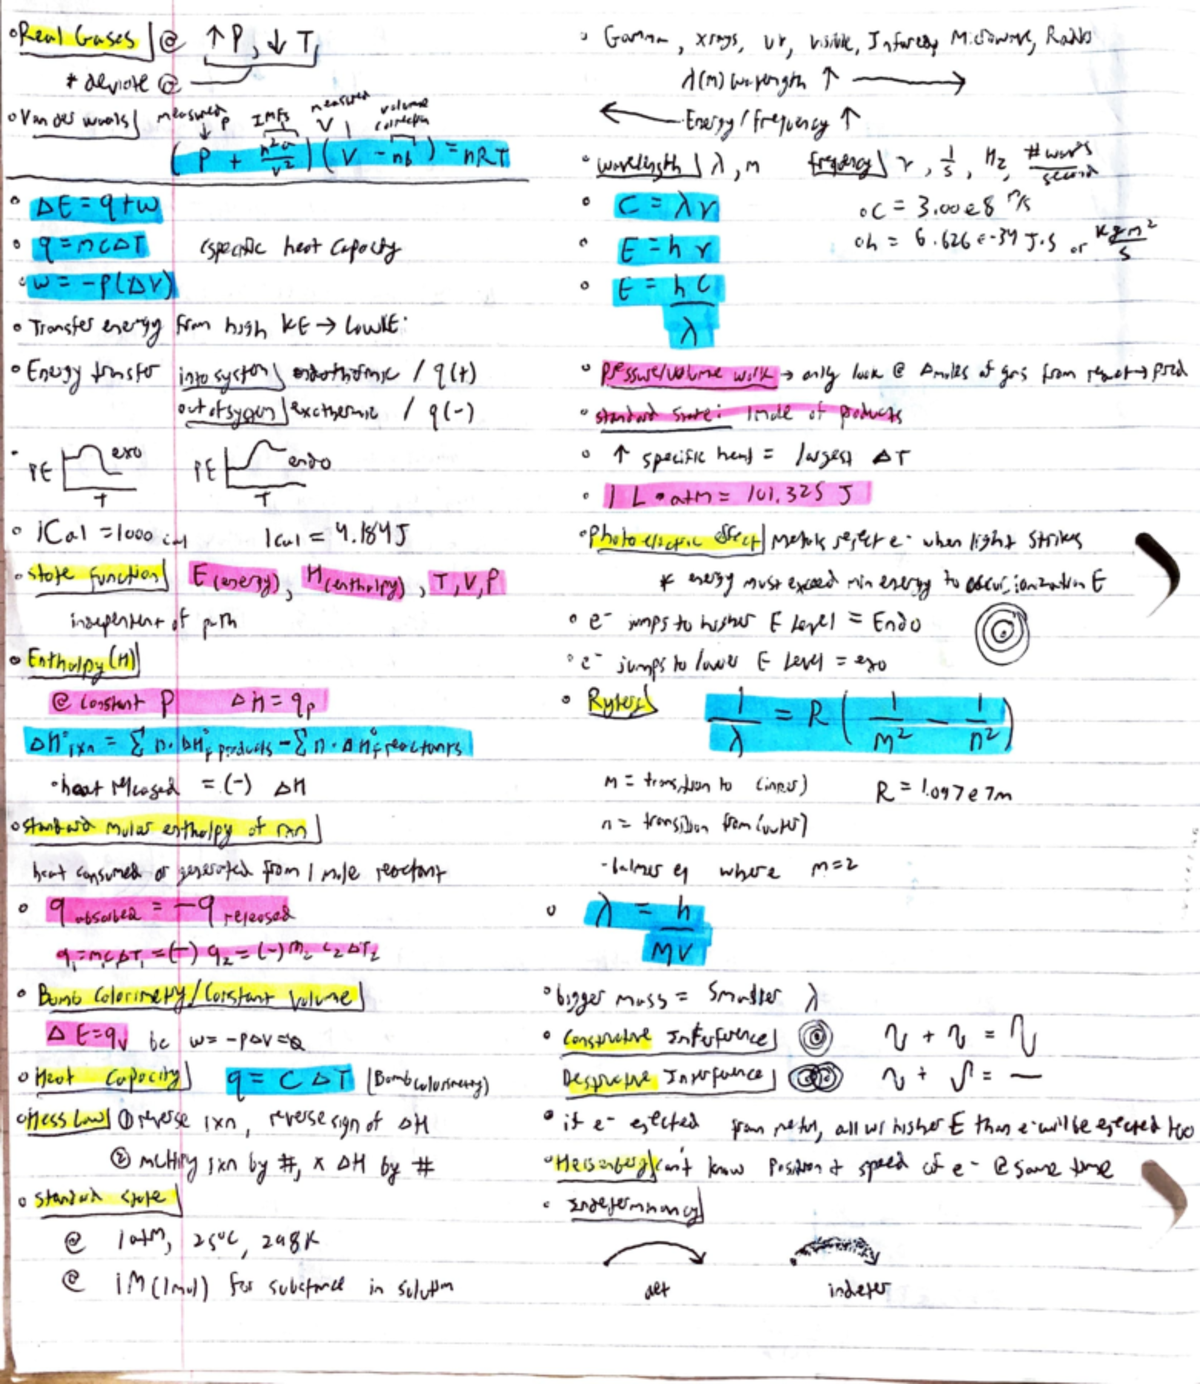 Real Gases @ ↑P, ↓T
* deviate @
Van der waals measured P IMFs measured V volume correction
(P + n²a/v²)(V - nb) = nRT
ΔE = q+w
q = mcΔT (specific heat capacity
w = -P(ΔV)
Transfer energy from high KE → low KE
Energy transfer into system endothermic / q(+)
out of system exothermic / q(-)
PE exo T PE endo T
1Cal = 1000 cal 1cal = 4.184J
state function E(energy), H(enthalpy), T, V, P
independent of path
Enthalpy (H)
@ constant P ΔH = qp
ΔH°rxn = Σ n·ΔH°f products - Σ n·ΔH°f reactants
heat released = (-) ΔH
standard molar enthalpy of rxn
heat consumed or generated from 1 mole reactant
q absorbed = -q released
q₁=m₁c₁ΔT₁ = (-) q₂ = (-) m₂ c₂ ΔT₂
Bomb Colorimetry/Constant Volume
ΔE=qv bc w = -PΔV=0
Heat Capacity q = CΔT (Bomb colorimetry)
Hess Law ① reverse rxn, reverse sign of ΔH
② multiply rxn by #, x ΔH by #
standard state
@ 1atm, 25°C, 298K
@ 1M (1mol) for substance in solution
Gamma, xrays, UV, visible, Infared, Microwave, Radio
λ(m) wavelength ↑ →
← Energy/frequency ↑
wavelength λ, m frequency ν, 1/s, Hz, # waves/second
C = λν c = 3.00e8 m/s
E = hν h = 6.626 e-34 J·s or kgm²/s
E = hC/λ
Pressure/volume work → only look @ Δmoles of gas from react → prod
standard state: 1mole of products
↑ specific heat = largest ΔT
1 L • atm = 101.325 J
Photoelectric effect Metals eject e- when light strikes
* energy must exceed min energy to occur, ionization E
e- jumps to higher E Level = Endo
e- jumps to lower E Level = exo
1/λ = R (1/m² - 1/n²)
m = transition to (inner) R = 1.097e7m
n = transition from (outer)
- balmer eq where m=2
λ = h/MV
bigger mass = Smaller λ
Constructive Interference + =
Destructive Interference + = —
if e- ejected from metal, all w higher E than e- will be ejected too
Heisenberg can't know Position & speed of e- @ same time
Indeterminancy
det indeter